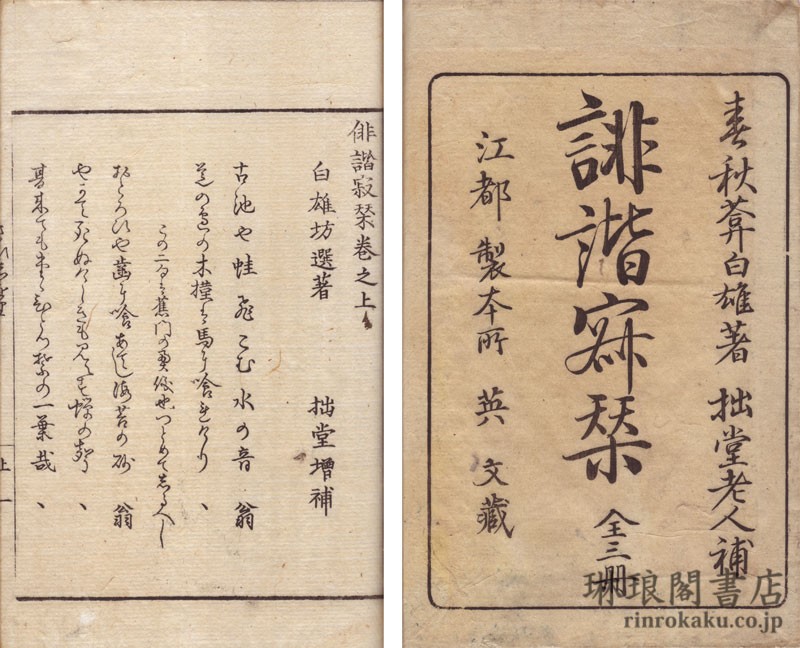 春秋葊白雄著 拙堂老人補
誹諧寂栞 全三冊
江都 製本所 英文藏
俳諧寂栞巻之上
白雄坊選著 拙堂増補
古池や蛙飛こむ水の音 翁
道の辺の木槿は馬に喰れけり 、
この二句は蕉門の奥儀也つとめてしるへし
おとろひや歯に喰あてし海苔の砂 翁
やかて死ぬけしきも見えす蝉の声 、
の一葉哉 、
上 一
琳琅閣書店
rinrokaku.co.jp